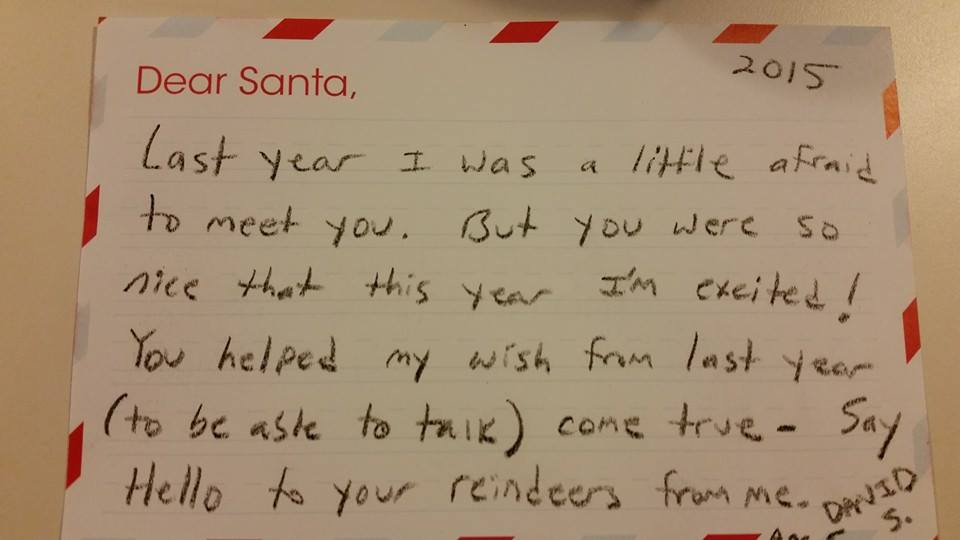 2015
Dear Santa,
Last year I was a little afraid
to meet you. But you were so
nice that this year I'm excited!
You helped my wish from last year
(to be able to talk) come true - Say
Hello to your reindeers from me. DAVID
S.